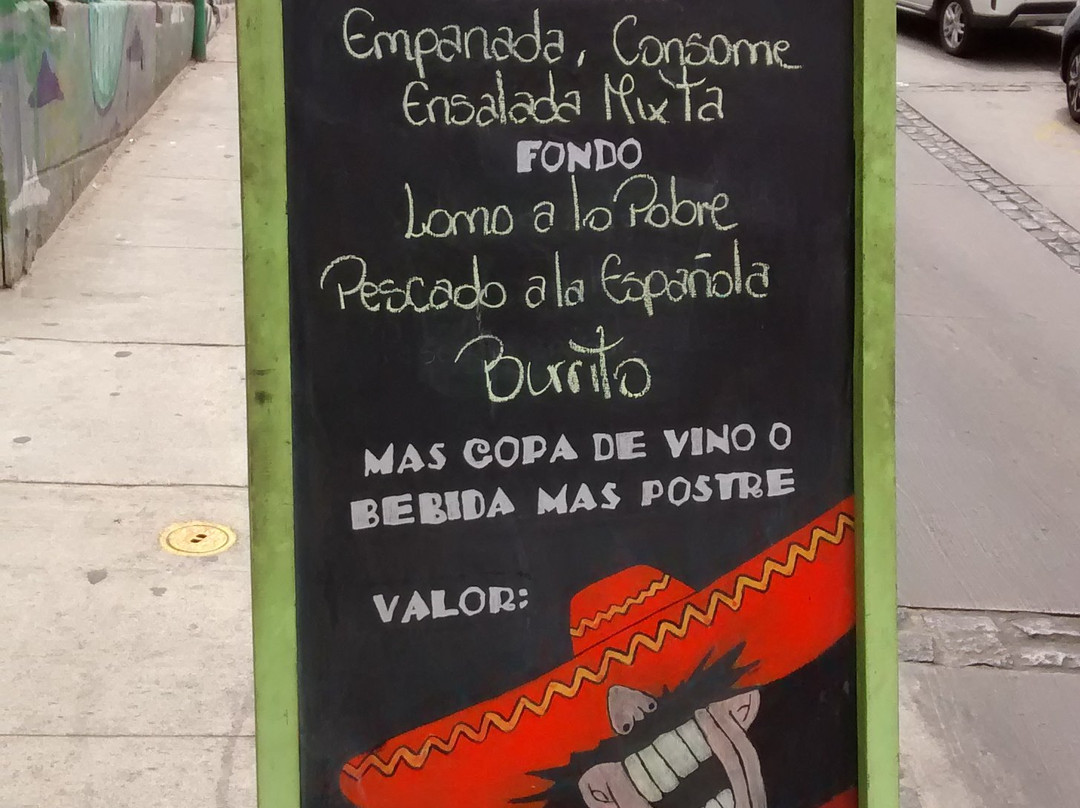 Empanada, Consome
Ensalada Mixta
FONDO
Lomo a lo Pobre
Pescado a la Española
Burrito
MAS COPA DE VINO O
BEBIDA MAS POSTRE
VALOR: